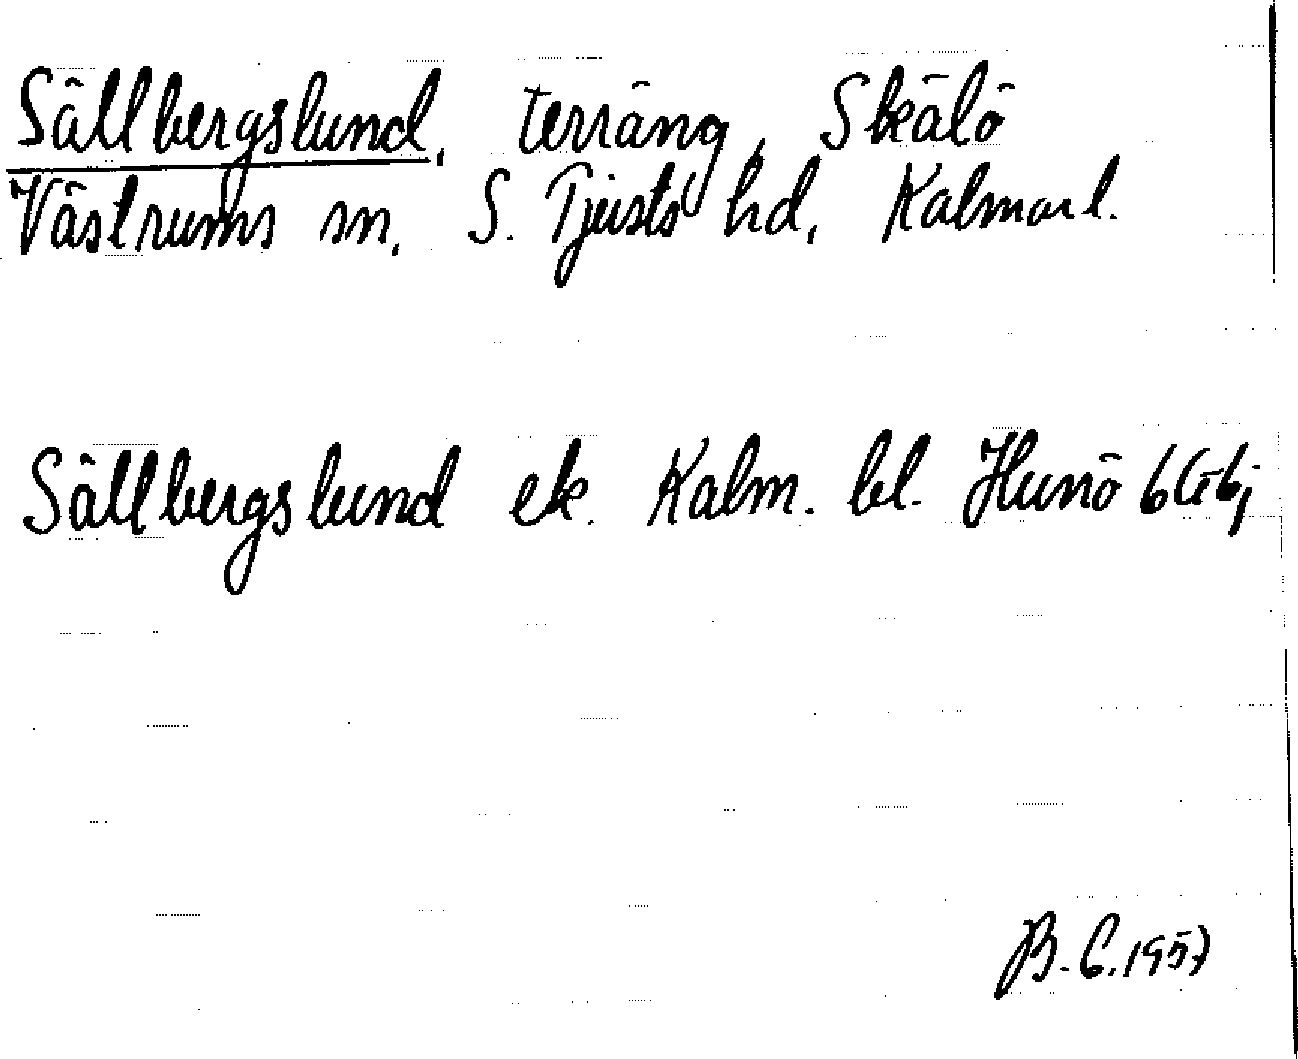 Sällbergslund, terräng, Skälö
Västrums sn, S. Tjusts hd, Kalmar l.
Sällbergslund ek. Kalm. bl. Hunö 6G6j
B. C. 1957